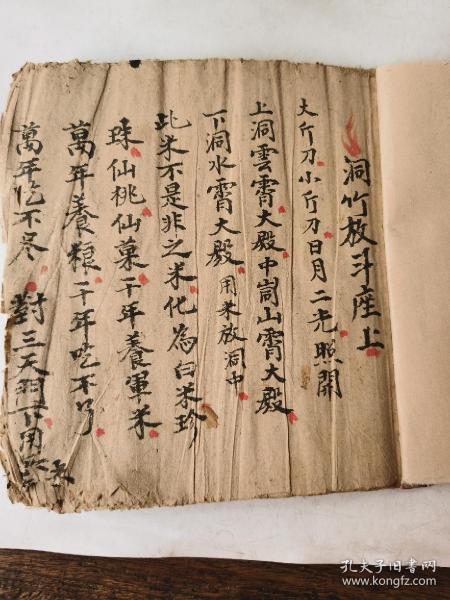 洞竹放斗座上
大斤刀小斤刀日月二光照開
上洞雲霄大殿中峝山霄大殿
下洞水霄大殿用米放洞中
此米不是非之米化為白米珍
珠仙桃仙菓千年養軍米
萬年養粮千年吃不了
萬年吃不尽對三天羽下用
孔夫子旧书网
www.kongfz.com